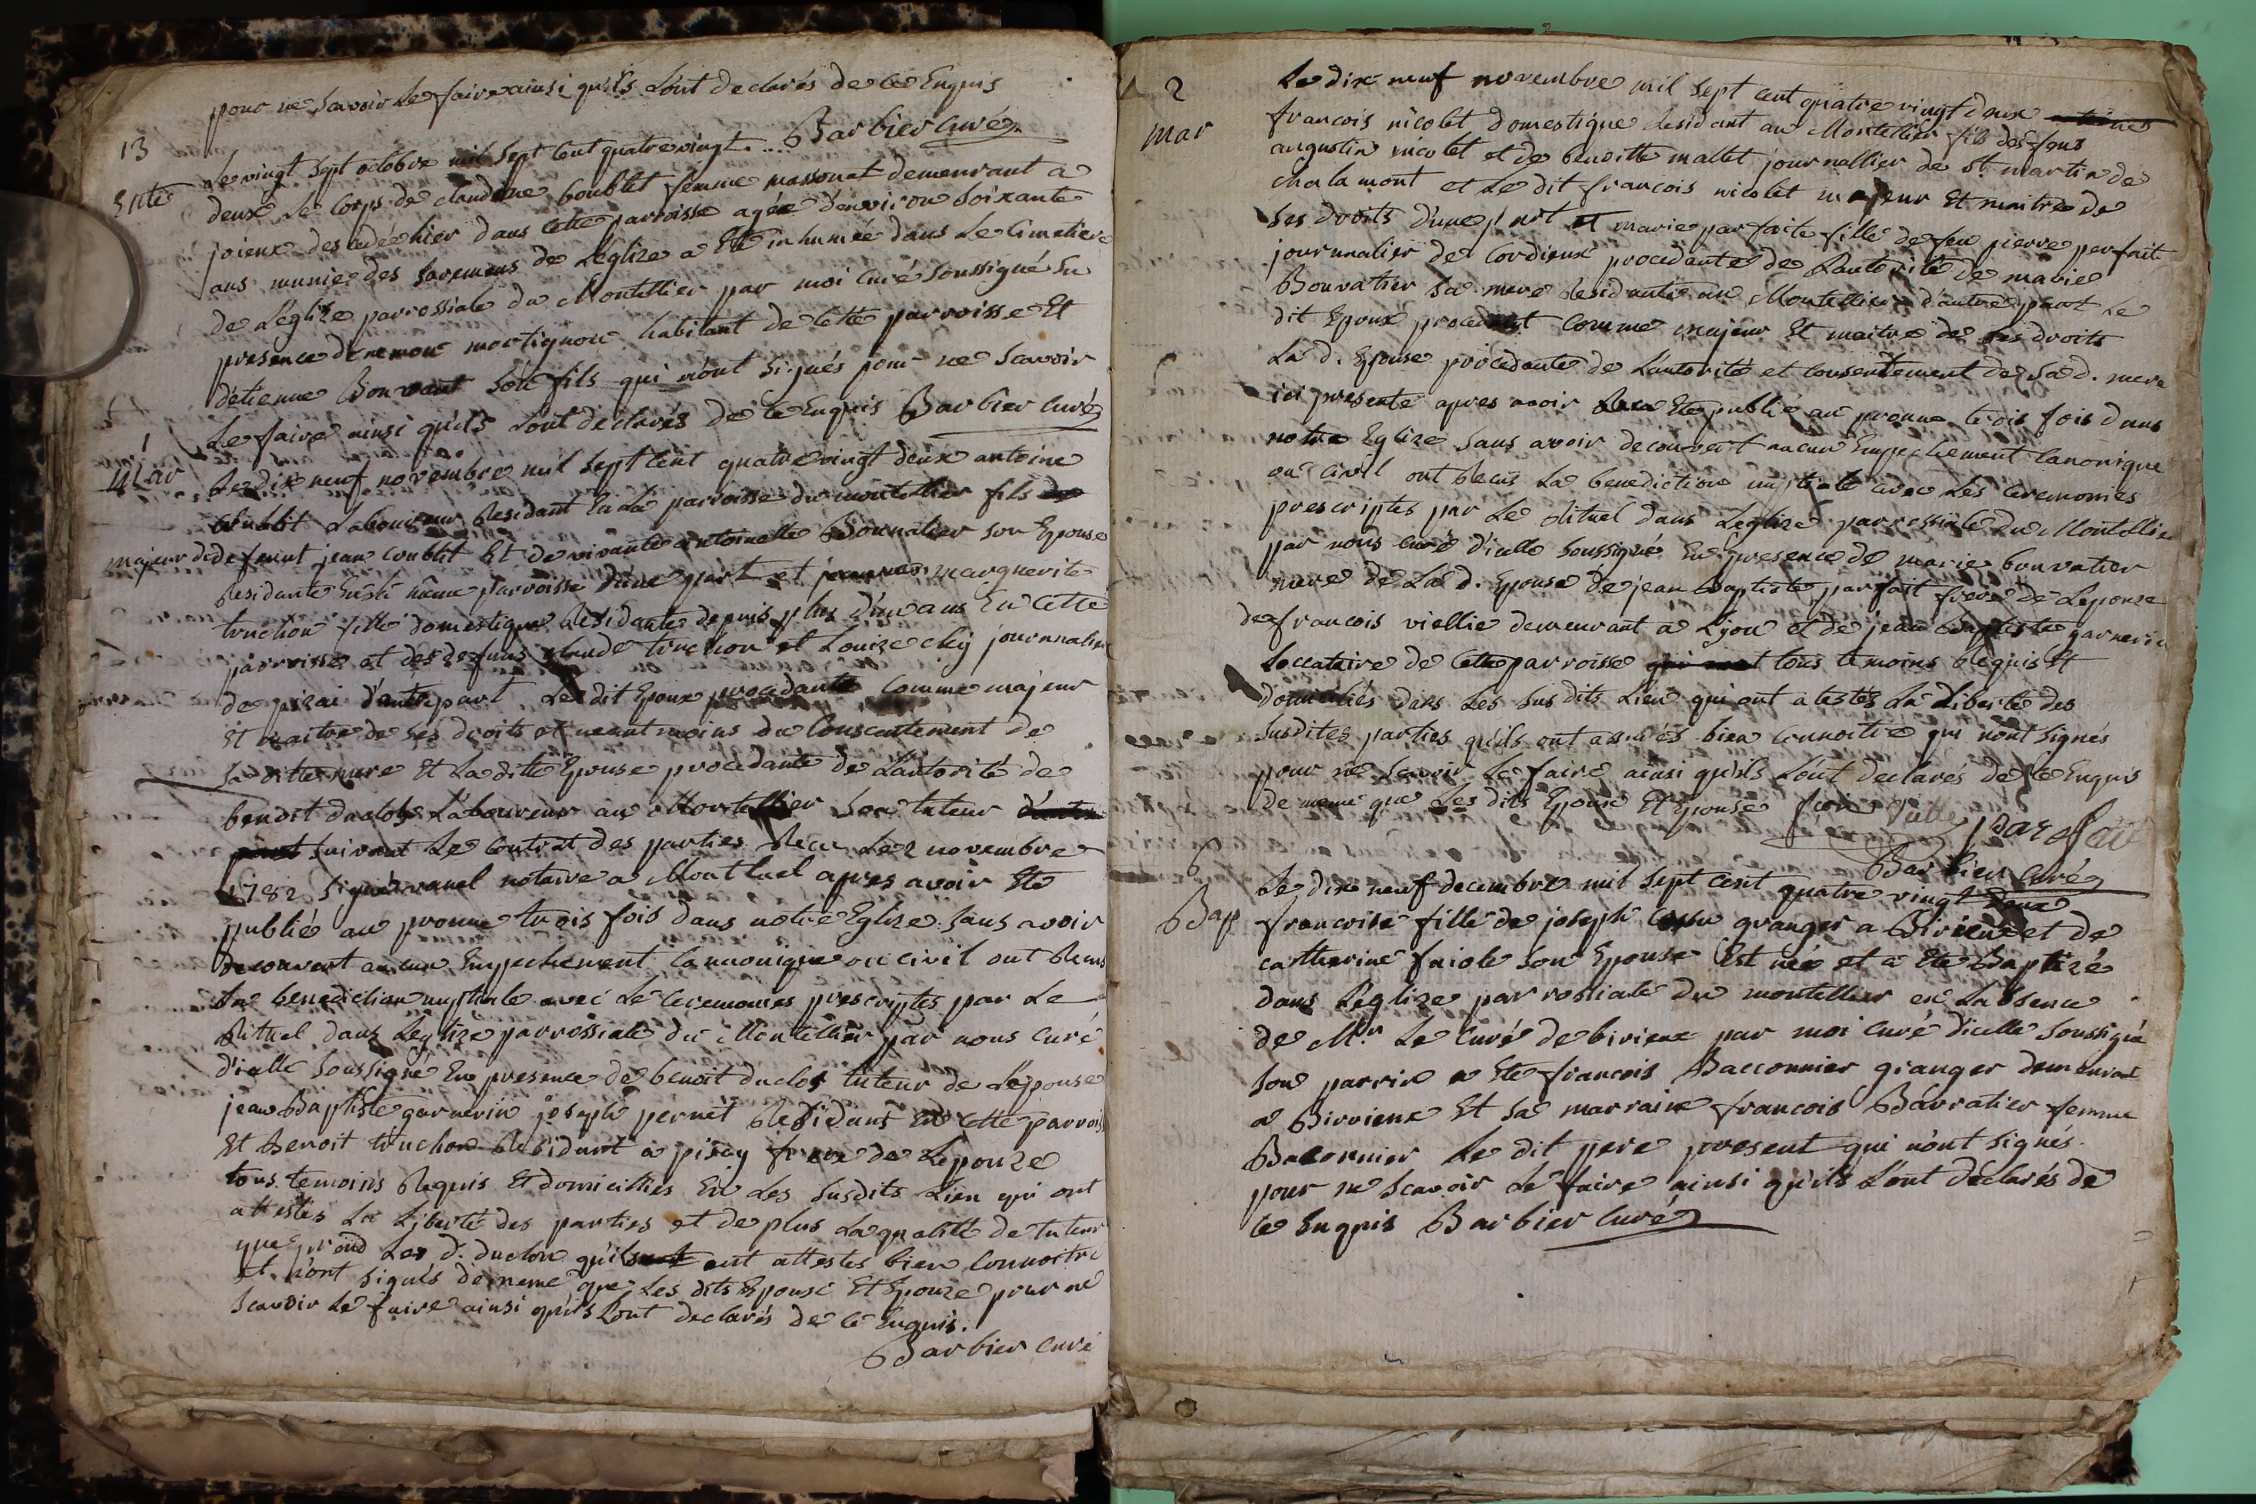 pour ne scavoir le faire ainsi qu'ils l'ont declarés de ce Enquis
Barbier curé
13
Ente
le vingt sept octobre mil sept cent quatre vingt
deux le corps de claudine boublet femme massonat demeurant a
joieux descedée hier dans cette parroisse agée d'environ soixante
ans munie des saremens de L'eglize a Ete inhumée dans le Cimetiere
de L'eglize parrossiale du Montellier par moi curé soussigné En
presence de mortignon habitant de cette parroisse Et
d'etienne Bonvant son fils qui n'ont signés pour ne Scavoir
Le faire ainsi qu'ils l'ont declarés de ce Enquis Barbier curé
1
Mar
Le dix neuf novembre mil sept cent quatre vingt deux antoine
Coublit Laboureur Residant En La parroisse du montellier fils
majeur de defunt jean coublit Et de vivante antoinette Bouvatier son Epouse
Residante En la même parroisse d'une part et marguerite
truchon fille domestique Residante depuis plus d'un ans En Cette
parroisse et des defuns claude truchon et Louize cley journalier
de pizai d'autre part Le dit Epoux procedante comme majeur
Et maitre de ses droits et neantmoins du Consentement de
sa ditte mere Et La ditte Epouse procedante de L'autorité de
benoit duclos Laboureur au Montellier son tuteur
suivant Le contrat des parties Recu Le 2 novembre
1782 Signé ranel notaire a Montluel apres avoir Ete
publié au pronne trois fois dans notre Eglize sans avoir
decouvert aucun Empechement cannonique ou civil ont Recus
La benediction nuptiale avec Les Ceremonies prescriptes par Le
Rituel dans Leglize parrossiale du Montellier par nous curé
d'icelle soussigné En presence de benoit duclos tuteur de L'epouse
jean Baptiste garnerin joseph pernet Residans En cette parroisse
Et Benoit truchon Residant a pisay frere de Lepouze
tous temoins Requis Et domiciliés En Les susdits Lieu qui ont
attestés La Liberté des parties et de plus La qualité de tuteur
que prend Le d. duclou qu'ils ont attestés bien Connoitre
et n'ont signés de meme que Les dits Epoux Et Epouze pour ne
Scavoir Le faire ainsi qu'ils L'ont declarés de ce Enquis.
Barbier curé
2
mar
Le dix neuf novembre mil sept cent quatre vingt deux
francois nicolet domestique Residant au Montellier fils des fous
augustin nicolet et de benoitte mallet journallier de st martin de
chalamont et Le dit francois nicolet majeur Et maitre de
ses droits d'une part et marie parfaite fille de feu pierre perfait
journnalier de Cordieux procedante de L'autorité de marie
Bouvatier sa mere Residante au Montellier d'autre part Le
dit Epoux procedant comme majeur Et maitre de ses droits
La d. Epouse procedante de L'autorité et consentement de sa d. mere
ici presente apres avoir Ete publié au pronne trois fois dans
notre Eglize sans avoir decouvert aucun Empechement Canonique
ou civil ont Recus La benediction nuptiale avec Les Ceremonies
prescriptes par Le Rituel dans L'eglize parrossiale du Montellier
par nous curé d'icelle soussigné En presence de marie bouvatier
mere de La d. Epouse de jean Baptiste parfait frere de Lepouze
de francois viellie demeurant a Lyon et de jean Baptiste garnerin
Loccataire de Cette parroisse tous temoins Requis Et
domiciliés dans Les susdits Lieu qui ont atestés La Liberté des
susdites parties qu'ils ont assurés bien Connoitre qui n'ont signés
pour ne scavoir Le faire ainsi qu'ils L'ont declarés de ce Enquis
de meme que Les dits Epoux Et Epouse
parfait
Barbier curé
6
Bap
Le dix neuf decembre mil sept cent quatre vingt deux
francoise fille de joseph granger a Birieux et de
catherine faiole son Epouse Est née et a Ete Baptizé
dans L'eglize parrossiale du montellier en Labsence
de Mr. Le curé de birieux par moi curé d'icelle soussigné
son parrin a Ete francois Bacconnier granger demeurant
a Birrieux Et sa marraine francois Barratier femme
Baconnier Le dit pere present qui n'ont signés
pour ne scavoir Le faire ainsi qu'ils L'ont declarés de
ce Enquis Barbier curé